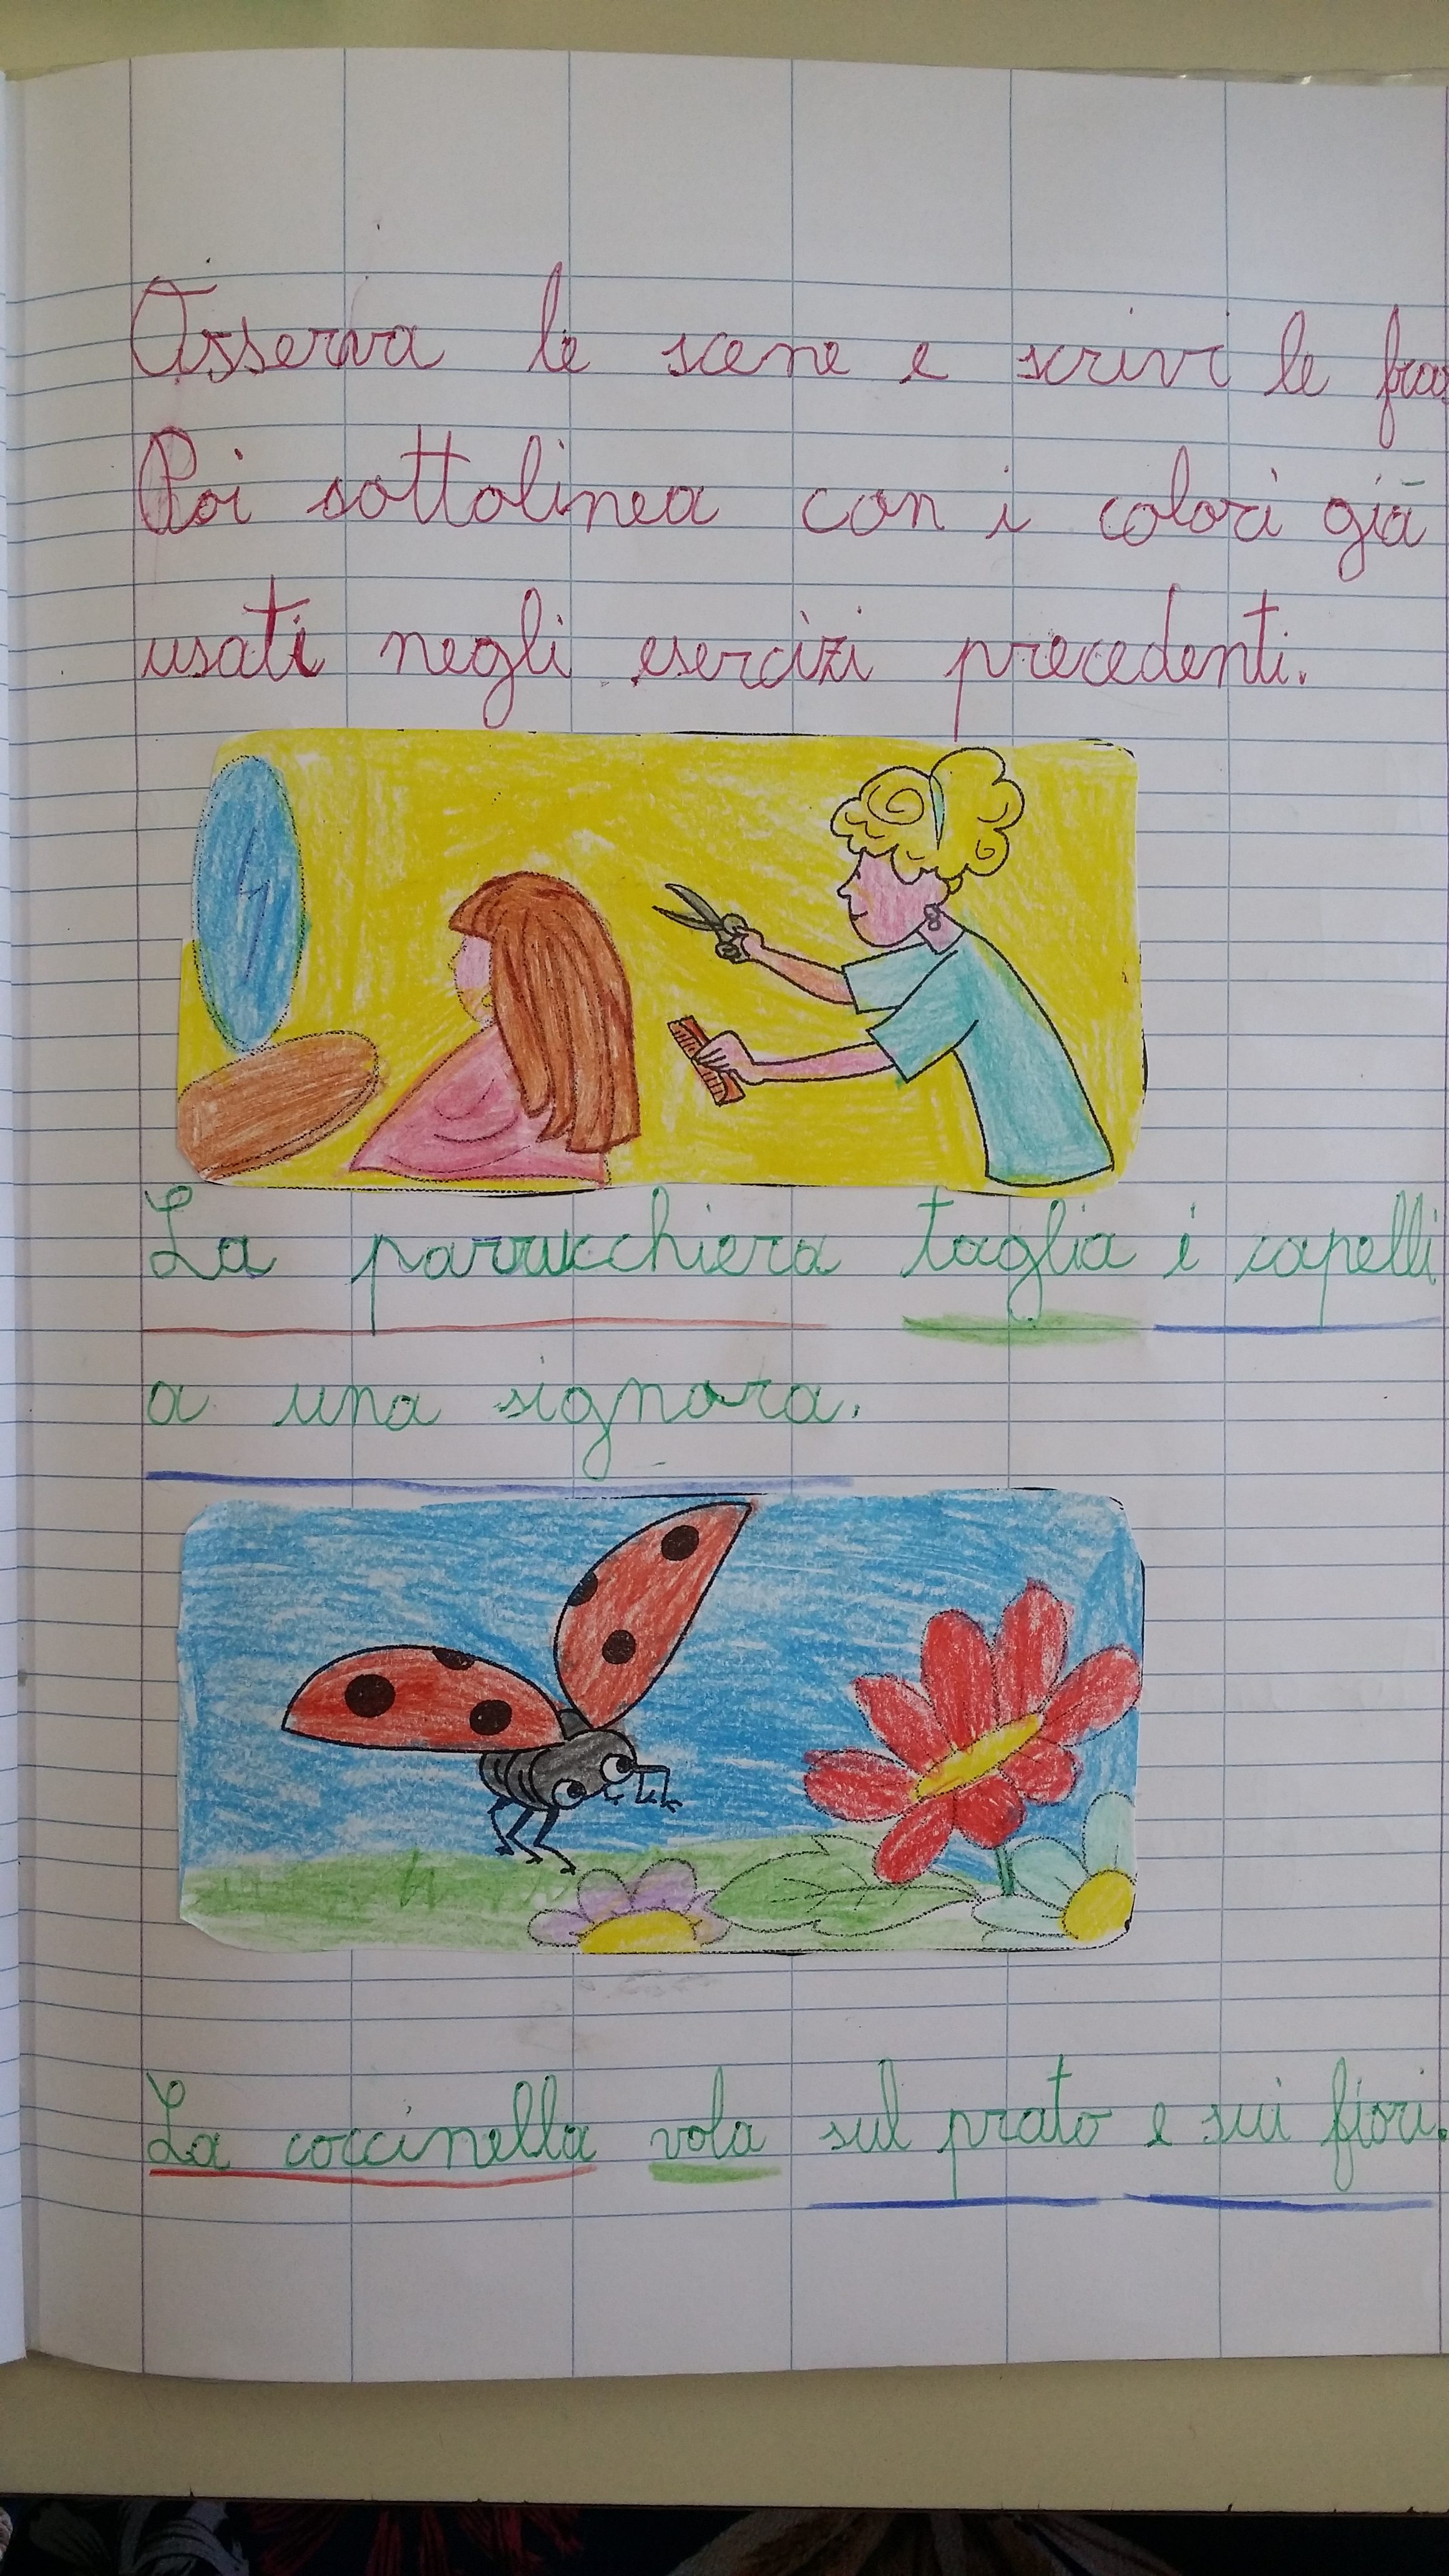 Osserva le scene e scrivi le fra
Poi sottolinea con i colori già
usati negli esercizi precedenti.
La parrucchiera taglia i capelli
a una signora.
La coccinella vola sul prato e sui fiori.